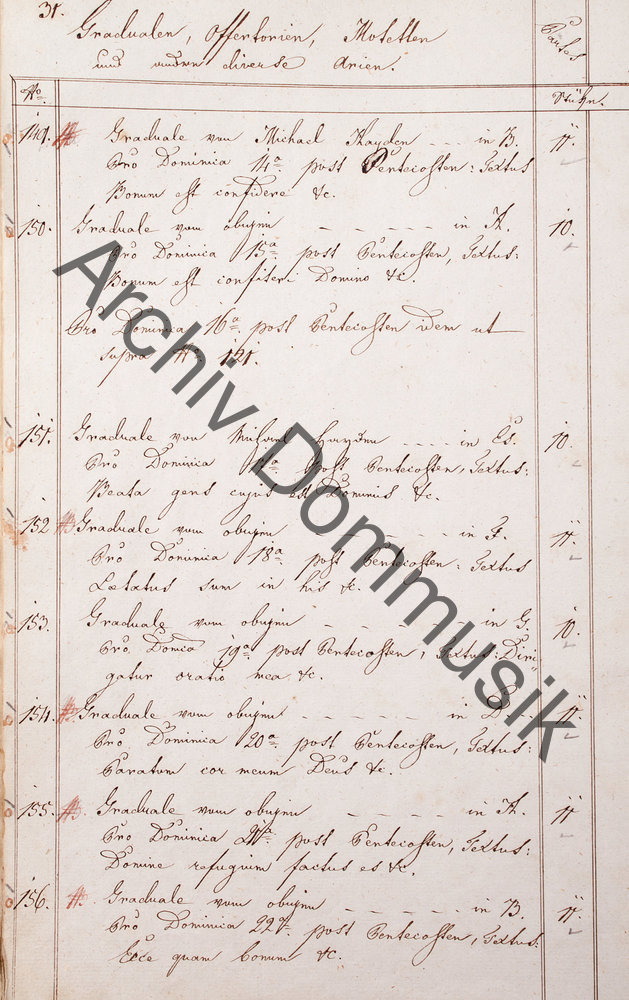 31.
Gradualen, Offertorien, Motetten
und andere diverse Arien.
Partes
No.
Stükn.
149. Graduale von Michael Hayden - - - in B. 11.
Pro Dominica 14a. post Pentecosten: Textus
Bonum est confidere &c.
150. Graduale vom obigen - - - - - in A. 10.
Pro Dominica 15a. post Pentecosten, Textus:
Bonum est confiteri Domino &c.
Pro Dominica 16a. post Pentecosten idem ut
supra No. 121.
151. Graduale von Michael Hayden - - - - in Es. 10.
Pro Dominica post Pentecosten, Textus:
Beata gens cujus est Dominus &c.
152 Graduale vom obigen - - - - - in F. 11.
Pro Dominica 18a. post Pentecosten: Textus
Lætatus sum in his &c.
153. Graduale vom obigen - - - - - in G. 10.
Pro Domica 19a. post Pentecosten, Textus: Diri„
gatur oratio mea &c.
154. Graduale vom obigen - - - - - - in 11.
Pro Dominica 20a. post Pentecosten, Textus:
Paratum cor meum Deus &c.
155. Graduale vom obigen - - - - - in A. 11
Pro Dominica 21a. post Pentecosten, Textus:
Domine refugium factus es &c.
156. Graduale vom obigen - - - - - in B. 11.
Pro Dominica 22a. post Pentecosten, Textus:
Ecce quam bonum &c.
Archiv Dommusik